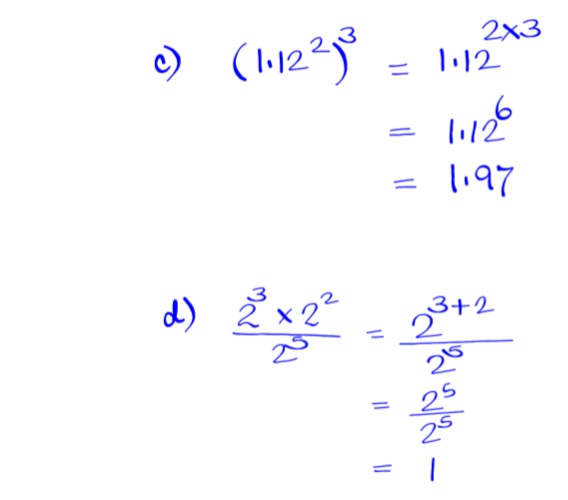 c) (1.12²)³ = 1.12²ˣ³
= 1.12⁶
= 1.97
d) (2³ × 2²)/2⁵ = 2³⁺²/2⁵
= 2⁵/2⁵
= 1